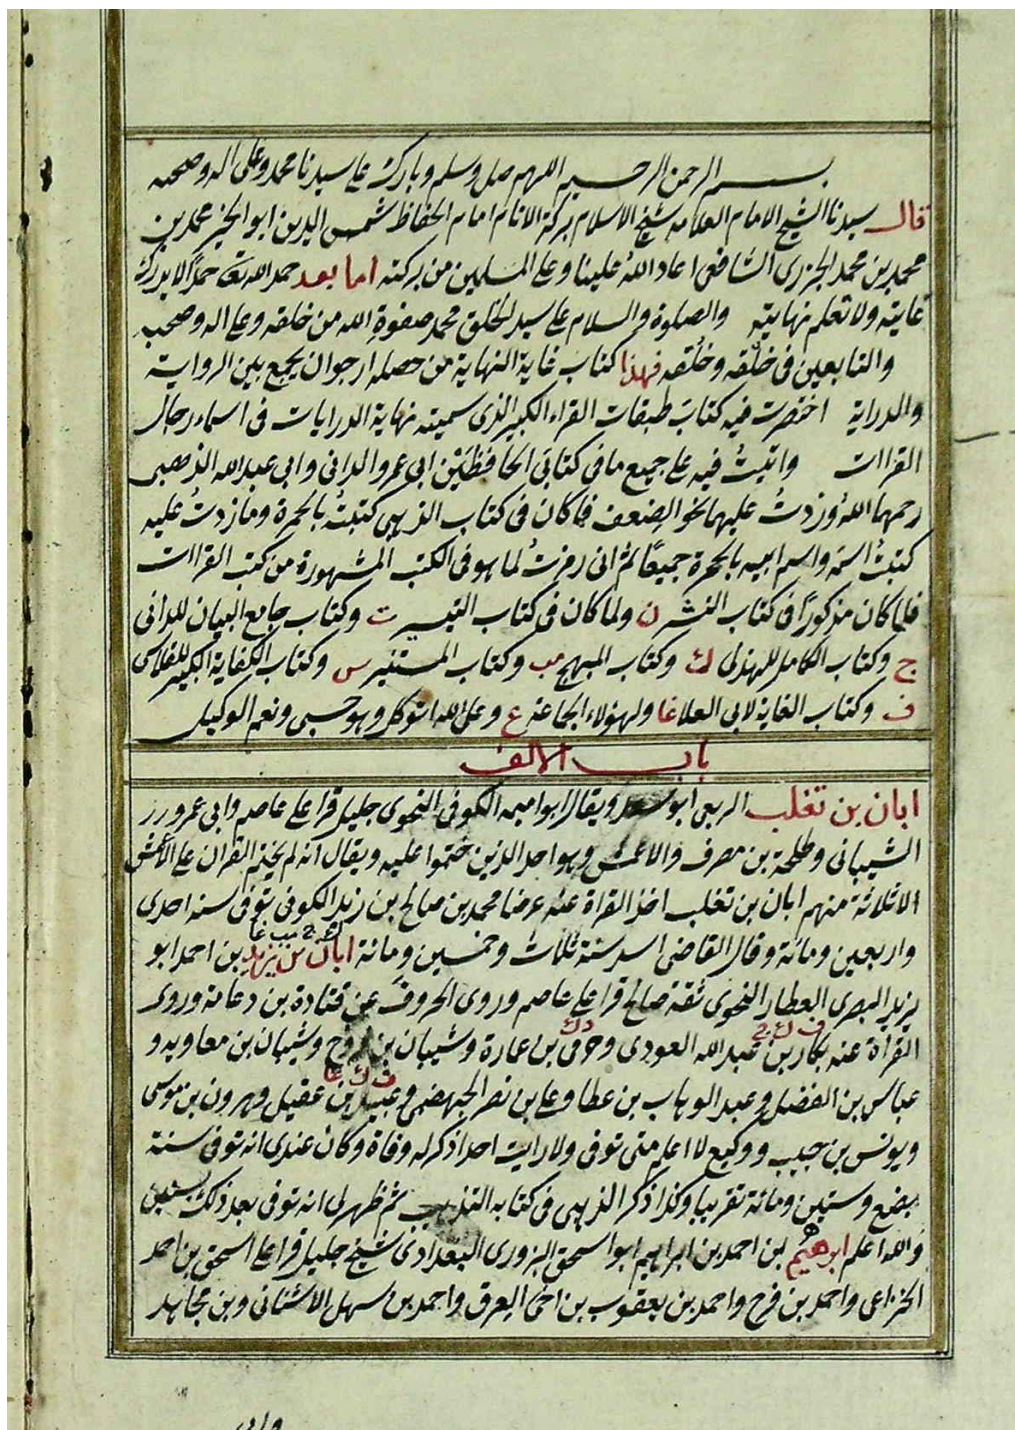 بسم الرحمن الرحيم اللهم صل وسلم وبارك على سيدنا محمد وعلى اله وصحبه
قال سيدنا الشيخ الامام العلامه شيخ الاسلام بركة الانام امام الحفاظ شمس الدين ابو الخير محمد بن
محمد بن محمد الجزرى الشافعى اعاد الله علينا وعلى المسلمين من بركته اما بعد حمد الله تعا حمدا لا يدرك
غايته ولا تعلم نهايته والصلوة والسلام على سيد الخلق محمد صفوة الله من خلقه وعلى اله وصحبه
والتابعين فى خلقه وخلقه فهذا كتاب غاية النهاية من حصله ارجو ان يجمع بين الرواية
والدراية اختصرت فيه كتاب طبقات القراء الكبير الذى سميته نهاية الدرايات فى اسماء رجال
القراات واتيتُ فيه على جميع ما فى كتابَى الحافظَيْن ابى عمرو الدانى وابى عبد الله الذهبى
رحمهما الله وزدتُ عليهما نحو الضعف فما كان فى كتاب الذهبى كتبتُه بالحمرة وما زدتُ عليه
كتبتُ اسمَه واسم ابيه بالحمرة جميعًا ثم انى رمزتُ لما هو فى الكتب المشهورة من كتب القراات
فلما كان مذكورًا فى كتاب النشر ن ولما كان فى كتاب التيسير ت وكتاب جامع البيان للدانى
ج وكتاب الكامل للهذلى ك وكتاب المبهج مب وكتاب المستنير س وكتاب الكفاية الكبير للقلانسى
ف وكتاب الغاية لابى العلا غا ولهؤلاء الجماعة ع وعلى الله اتوكل وهو حسبى ونعم الوكيل
باب الالف
ابان بن تغلب الربعى ابو سعد ويقال ابو اميمه الكوفى النحوى جليل قرا على عاصم وابى عمرو
الشيبانى وطلحة بن مصرف والاعمش وهو احد الذين ختموا عليه ويقال انه لم يختم القران على الاعمش
الا ثلاثة منهم ابان بن تغلب اخذ القراة عنه عرضا محمد بن صالح بن زيد الكوفى توفى سنه احدى
واربعين ومائة وقال القاضى اسد سنة ثلاث وخمسين ومائة ابان بن يزيد بن احمد ابو
يزيد البصرى العطار النحوى ثقة صالح قرا على عاصم وروى الحروف عن قتادة بن دعامة وروى
القراة عنه بكار بن عبد الله العودى وحرمى بن عمارة وشيبان بن فروخ وشيبان بن معاويه و
عباس بن الفضل وعبد الوهاب بن عطا وعلى بن نصر الجهضمى وعبيد بن عقيل وهرون بن موسى
ويونس بن حبيب ووكيع لا اعلم متى توفى ولا رايت احدا ذكر له وفاة وكان عندى انه توفى سنة
بضع وستين ومائة تقريبا وكذا ذكر الذهبى فى كتابه التذهيب ثم ظهر لى انه توفى بعد ذلك بسنين
والله اعلم ابرهيم بن احمد بن ابراهيم ابو اسحق البزورى البغدادى شيخ جليل قرا على اسحق بن احمد
الخزاعى واحمد بن فرح واحمد بن يعقوب بن اخى العرق واحمد بن سهل الاشنانى وبن مجاهد